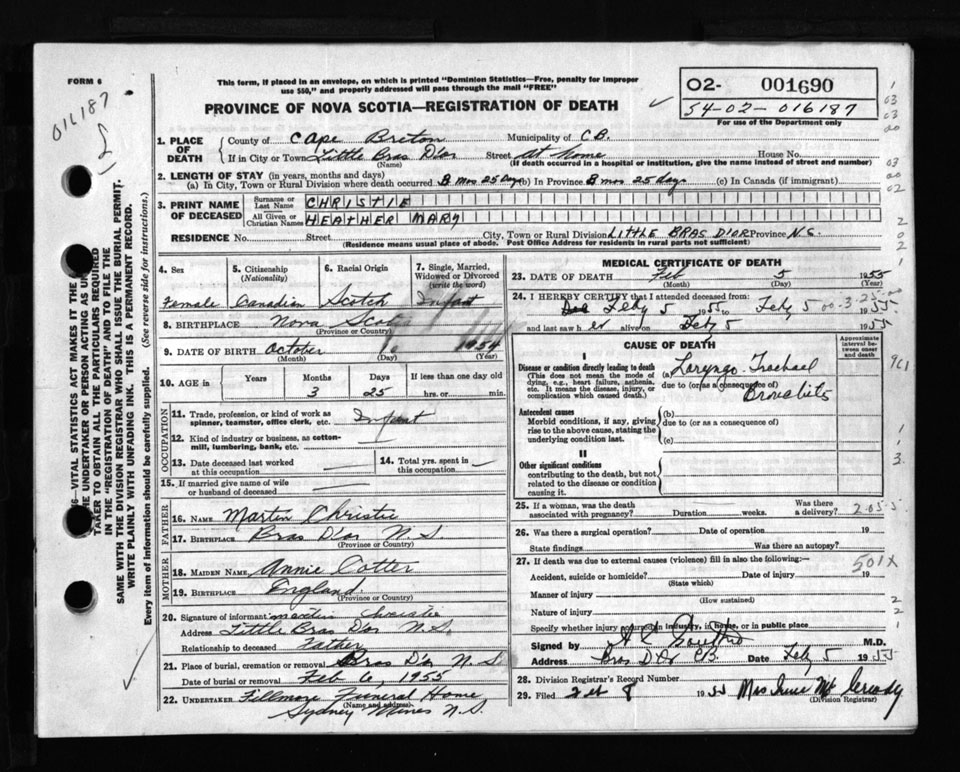 FORM 6
This form, if placed in an envelope, on which is printed "Dominion Statistics—Free, penalty for improper
use $50," and properly addressed will pass through the mail "FREE"
PROVINCE OF NOVA SCOTIA—REGISTRATION OF DEATH
02- 001690
54-02-016187
For use of the Department only
016187
1. PLACE OF DEATH
County of Cape Breton Municipality of C.B.
If in City or Town Little Bras D'or Street at home House No.
(Name) (If death occurred in a hospital or institution, give the name instead of street and number)
2. LENGTH OF STAY (in years, months and days)
(a) In City, Town or Rural Division where death occurred 8 mos 25 days (b) In Province 8 mos 25 days (c) In Canada (if immigrant)
3. PRINT NAME OF DECEASED
Surname or Last Name CHRISTIE
All Given or Christian Names HEATHER MARY
RESIDENCE No. Street City, Town or Rural Division LITTLE BRAS D'OR Province N.S.
(Residence means usual place of abode. Post Office Address for residents in rural parts not sufficient)
4. Sex Female
5. Citizenship (Nationality) Canadian
6. Racial Origin Scotch
7. Single, Married, Widowed or Divorced (write the word) Infant
8. BIRTHPLACE Nova Scotia
(Province or Country)
9. DATE OF BIRTH October 1954
(Month) (Day) (Year)
10. AGE in Years Months 3 Days 25 If less than one day old hrs. or min.
OCCUPATION
11. Trade, profession, or kind of work as spinner, teamster, office clerk, etc. Infant
12. Kind of industry or business, as cotton-mill, lumbering, bank, etc.
13. Date deceased last worked at this occupation
14. Total yrs. spent in this occupation
15. If married give name of wife or husband of deceased
FATHER
16. NAME Martin Christie
17. BIRTHPLACE Bras D'or N.S.
(Province or Country)
MOTHER
18. MAIDEN NAME Annie Cotter
19. BIRTHPLACE England
(Province or Country)
20. Signature of informant Martin Christie
Address Little Bras D'or N.S.
Relationship to deceased Father
21. Place of burial, cremation or removal Bras D'or N.S.
Date of burial or removal Feb 6, 1955
22. UNDERTAKER Fillmore Funeral Home
(Name and address)
Sydney Mines N.S.
MEDICAL CERTIFICATE OF DEATH
23. DATE OF DEATH Feb 5 1955
(Month) (Day)
24. I HEREBY CERTIFY that I attended deceased from:
Feb 5 1955 to Feb 5 1955
and last saw her alive on Feb 5 1955
CAUSE OF DEATH
Approximate interval between onset and death
I
Disease or condition directly leading to death
(This does not mean the mode of dying, e.g., heart failure, asthenia, etc. It means the disease, injury, or complication which caused death.)
(a) Laryngo-Tracheal
due to (or as a consequence of)
Bronchitis
Antecedent causes
Morbid conditions, if any, giving rise to the above cause, stating the underlying condition last.
(b)
due to (or as a consequence of)
(c)
II
Other significant conditions
contributing to the death, but not related to the disease or condition causing it.
25. If a woman, was the death associated with pregnancy? Duration weeks. Was there a delivery?
26. Was there a surgical operation? Date of operation 19
State findings Was there an autopsy?
27. If death was due to external causes (violence) fill in also the following:
501X
Accident, suicide or homicide? Date of injury 19
(State which)
Manner of injury
(How sustained)
Nature of injury
Specify whether injury occurred in industry, in home, or in public place
Signed by M.D.
Address Bras D'Or C.B. Date Feb 5 1955
28. Division Registrar's Record Number
29. Filed Feb 8 1955
(Division Registrar)
VITAL STATISTICS ACT MAKES IT THE
THE UNDERTAKER OR PERSON ACTING AS
TAKER TO OBTAIN ALL THE PARTICULARS REQUIRED
IN THE "REGISTRATION OF DEATH" AND TO FILE THE
SAME WITH THE DIVISION REGISTRAR WHO SHALL ISSUE THE BURIAL PERMIT.
WRITE PLAINLY WITH UNFADING INK. THIS IS A PERMANENT RECORD.
Every item of information should be carefully supplied. (See reverse side for instructions.)